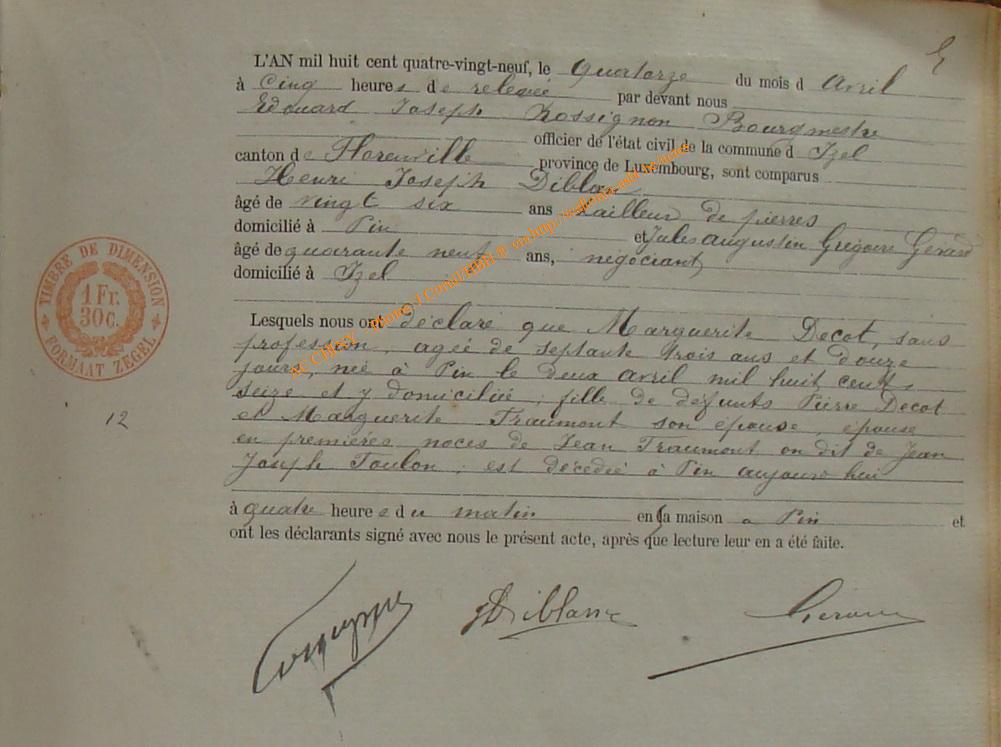 L'AN mil huit cent quatre-vingt-neuf, le quatorze du mois d avril
à cinq heures de relevée par devant nous
Edouard Joseph Rossignon Bourgmestre
officier de l'état civil de la commune d Izel
canton de Florenville province de Luxembourg, sont comparus
Henri Joseph Diblan
âgé de vingt six ans tailleur de pierres
domicilié à Pin et Jules Augustin Grégoire Gérard
âgé de quarante neuf ans, négociant
domicilié à Izel
Lesquels nous ont déclaré que Marguerite Decot, sans
profession, agée de septante trois ans et douze
jours, née à Pin le deux avril mil huit cent
seize et y domiciliée; fille de défunts Pierre Decot
et Marguerite Fraumont son épouse, épouse
en premières noces de Jean Traumont on dit de Jean
Joseph Toulon; est décédée à Pin aujourd hui
à quatre heures du matin en sa maison a Pin et
ont les déclarants signé avec nous le présent acte, après que lecture leur en a été faite.
TIMBRE DE DIMENSION
1 Fr.
30 C.
FORMAAT ZEGEL
12